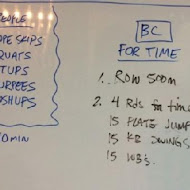 PEOPLE
OPE SKIPS
QUATS
TUPS
URPEES
SHUPS
OMIN
BC
FOR TIME
1. ROW 500m
2. 4 Rds for time
15 PLATE JUMP
15 KB SWINGS
15 WB's